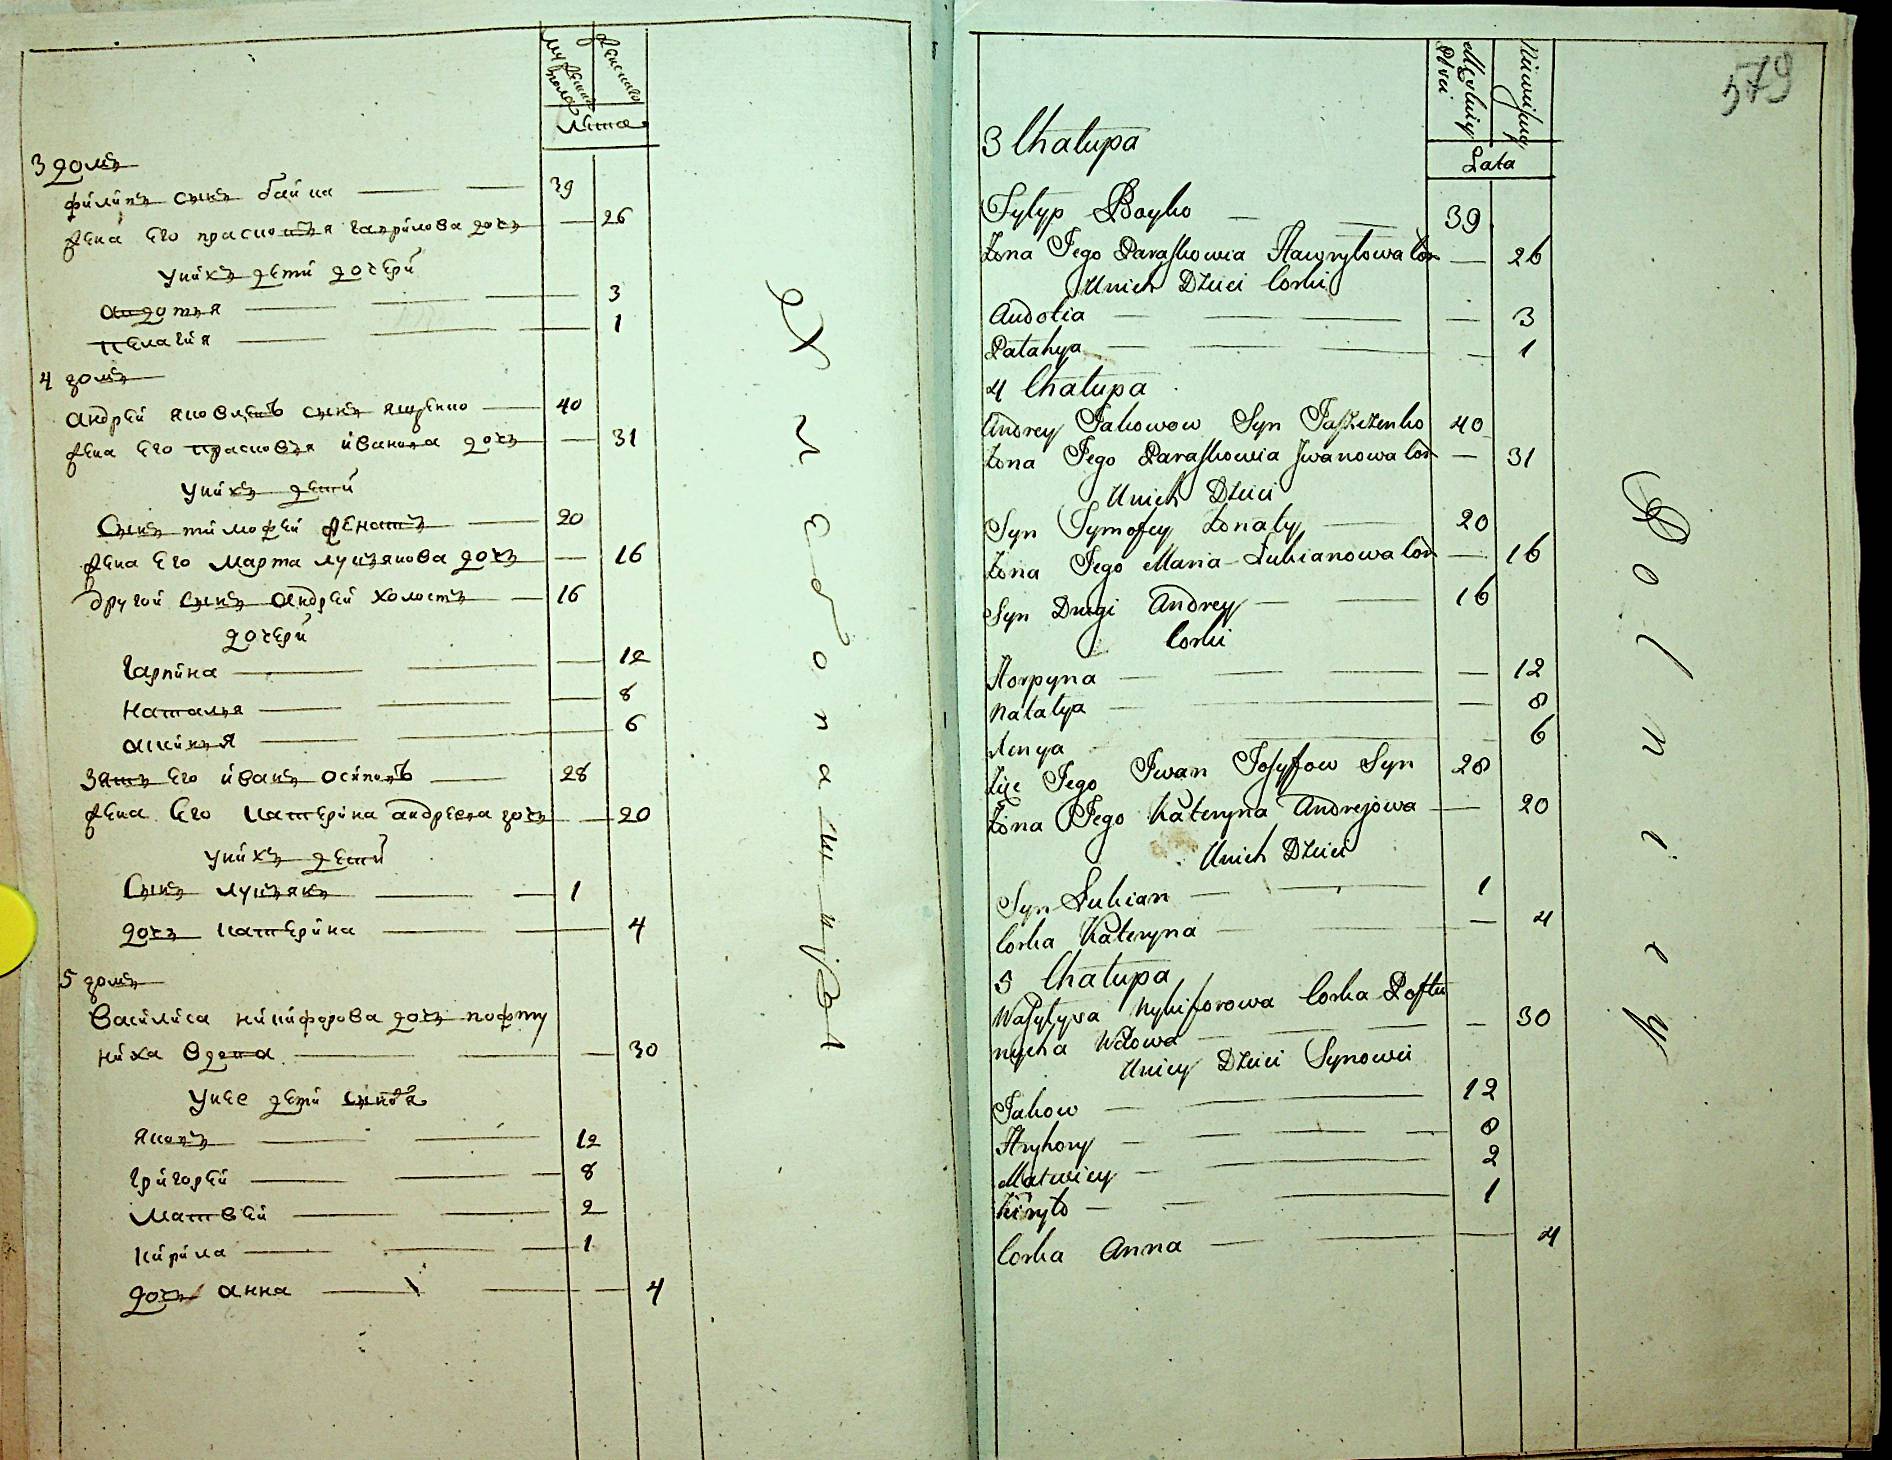 мужеска пола
женскаго
Лѣта
3 домъ
филипъ сынъ байка 39
жена Его прасковья гаврилова дочь 26
у нихъ дети дочери
авдотья 3
пелагия 1
4 домъ
андрей яковлевъ сынъ ященко 40
жена его прасковья иванова дочь 31
у нихъ дети
сынъ тимофей женатъ 20
жена Его марта лукъянова дочь 16
другой сынъ андрей холостъ 16
дочери
гарпина 12
наталья 8
аксинья 6
зять его иванъ осиповъ 28
жена его катерина андреева дочь 20
у нихъ дети
сынъ лукъянъ 1
дочь катерина 4
5 домъ
василиса никифорова дочь пофту
ниха вдова 30
у нее дети сыновя
яковъ 12
григорей 8
матвей 2
кирила 1
дочь анна 4
579
Męskiey Płci
Niewieskiey
Lata
3 Chałupa
Fylyp Boyko 39
Żona Jego Paraskowia Hawryłowa Cor 26
U nich Dzieci Corki
Audotia 3
Palahya 1
4 Chałupa
Andrey Jakowow Syn Jaszczenko 40
Żona Jego Paraskowia Jwanowa Cor 31
U nich Dzieci
Syn Tymofey Żonaty 20
Żona Jego Maria Łukianowa Cor 16
Syn Drugi Andrey 16
Corki
Horpyna 12
Natalya 8
Xenya 6
Zięć Jego Jwan Josyfow Syn 28
Żona Jego Kateryna Andrejowa 20
U nich Dzieci
Syn Łukian 1
Corka Kateryna 4
5 Chałupa
Wasylysa Nykiforowa Corka Poftu
nycha Wdowa 30
U niey Dzieci Synowei
Jakow 12
Hryhory 8
Matwiey 2
Kiryło 1
Corka Anna 4